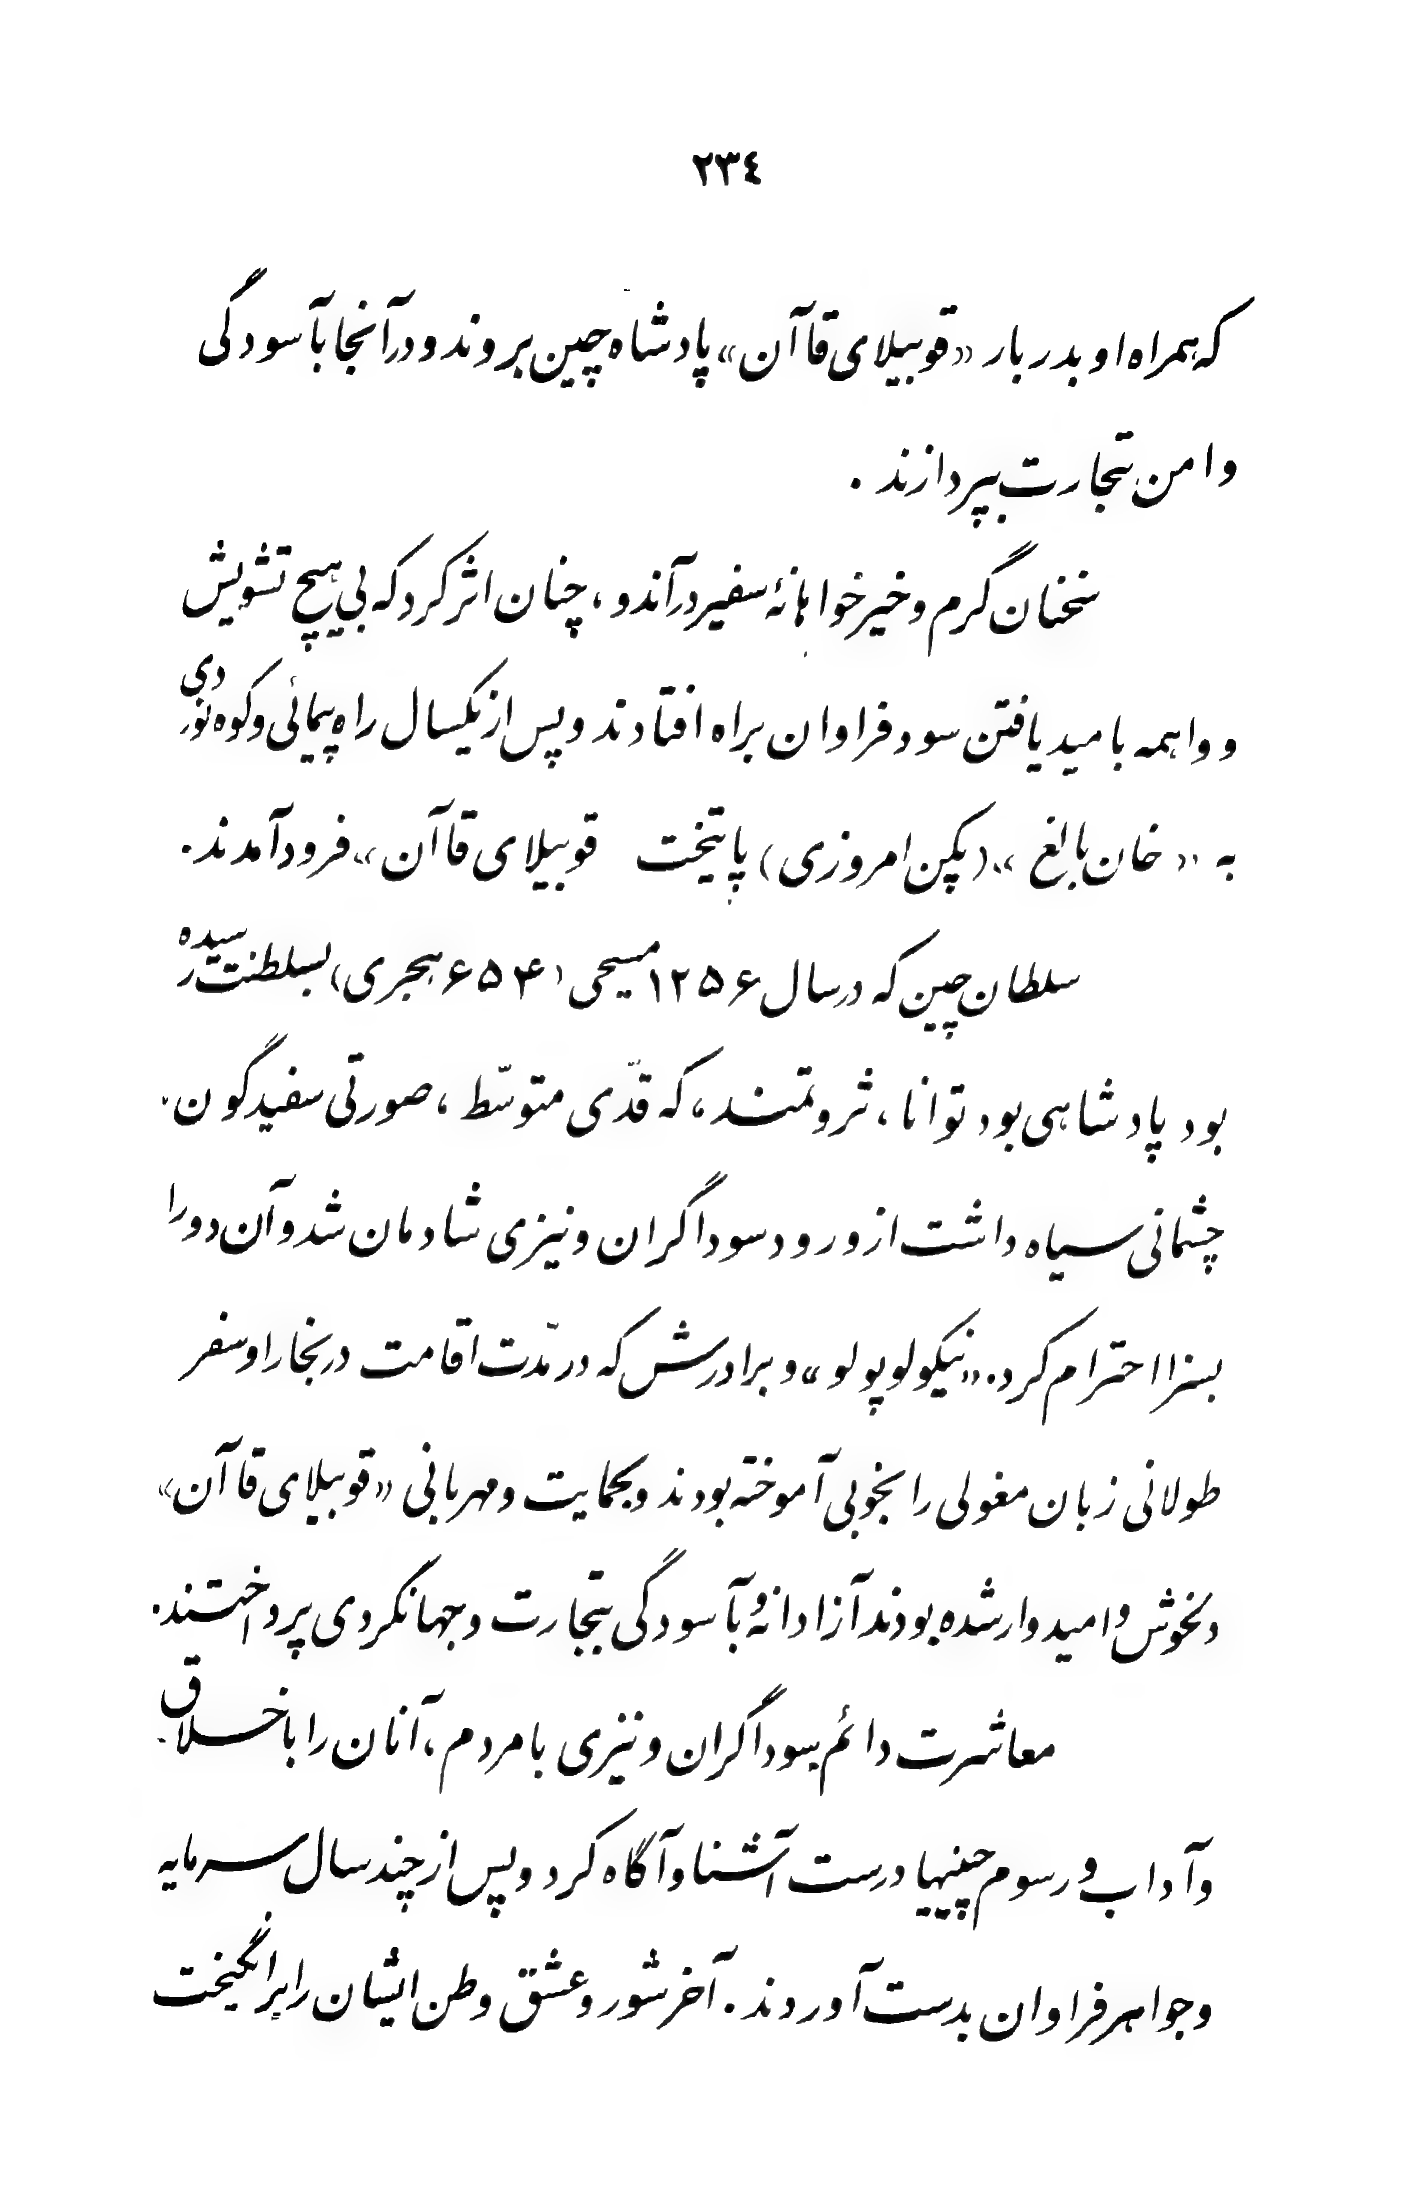 ٢٣٤
که همراه او بدربار «قوبیلای قاآن» پادشاه چین بروند و در آنجا بآسودگی
و امن بتجارت بپردازند .
سخنان گرم و خیرخواهانهٔ سفیر در آندو ، چنان اثر کرد که بی هیچ تشویش
و واهمه بامید یافتن سود فراوان براه افتادند و پس از یکسال راه پیمائی و کوه نوردی
به «خان بالغ» (پکن امروزی) پایتخت قوبیلای قاآن» فرود آمدند .
سلطان چین که در سال ۱۲۵۶ مسیحی (۶۵۴ هجری) بسلطنت رسیده
بود پادشاهی بود توانا ، ثروتمند ، که قدّی متوسّط ، صورتی سفیدگون ،
چشمانی سیاه داشت از ورود سوداگران ونیزی شادمان شد و آن دو را
بسزا احترام کرد . «نیکولوپولو» و برادرش که در مدّت اقامت در بخارا و سفر
طولانی زبان مغولی را بخوبی آموخته بودند و بحمایت و مهربانی «قوبیلای قاآن»
دلخوش و امیدوار شده بودند آزادانه و بآسودگی بتجارت و جهانگردی پرداختند .
معاشرت دائم سوداگران ونیزی با مردم ، آنان را باخلاق
و آداب و رسوم چینیها درست آشنا و آگاه کرد و پس از چند سال سرمایه
و جواهر فراوان بدست آوردند . آخر شور و عشق وطن ایشان را برانگیخت